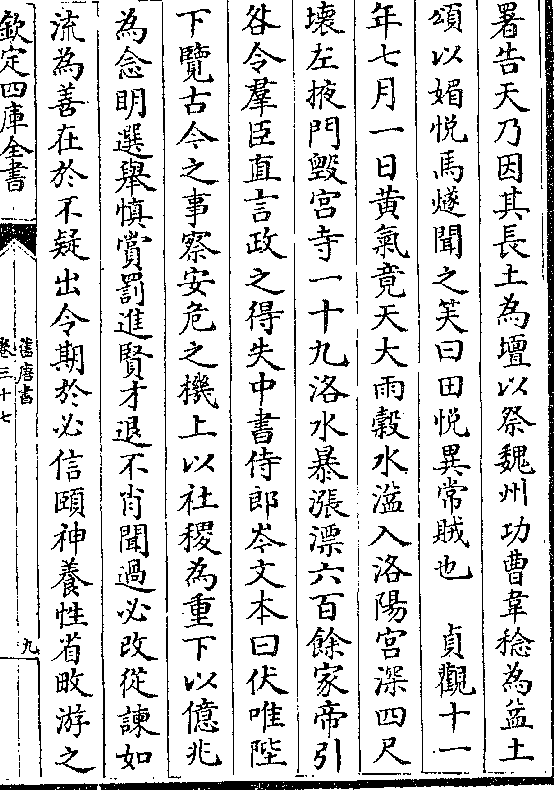 署告天乃因其長土為壇以祭魏州功曹韋稔為益土
頌以媚悦馬燧聞之笑曰田悦異常賊也　貞觀十一
年七月一日黄氣竟天大雨穀水溢入洛陽宫深四尺
壊左掖門毁宫寺一十九洛水暴漲漂六百餘家帝引
咎令羣臣直言政之得失中書侍郎岑文本曰伏唯陛
下覽古今之事察安危之機上以社稷為重下以億兆
為念明選舉慎賞罰進賢才退不肖聞過必改從諫如
流為善在於不疑出令期於必信頤神養性省畋游之
欽定四庫全書
舊唐書
卷三十七
九